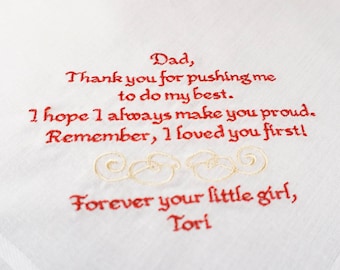 Dad,
Thank you for pushing me
to do my best.
I hope I always make you proud.
Remember, I loved you first!
Forever your little girl,
Tori